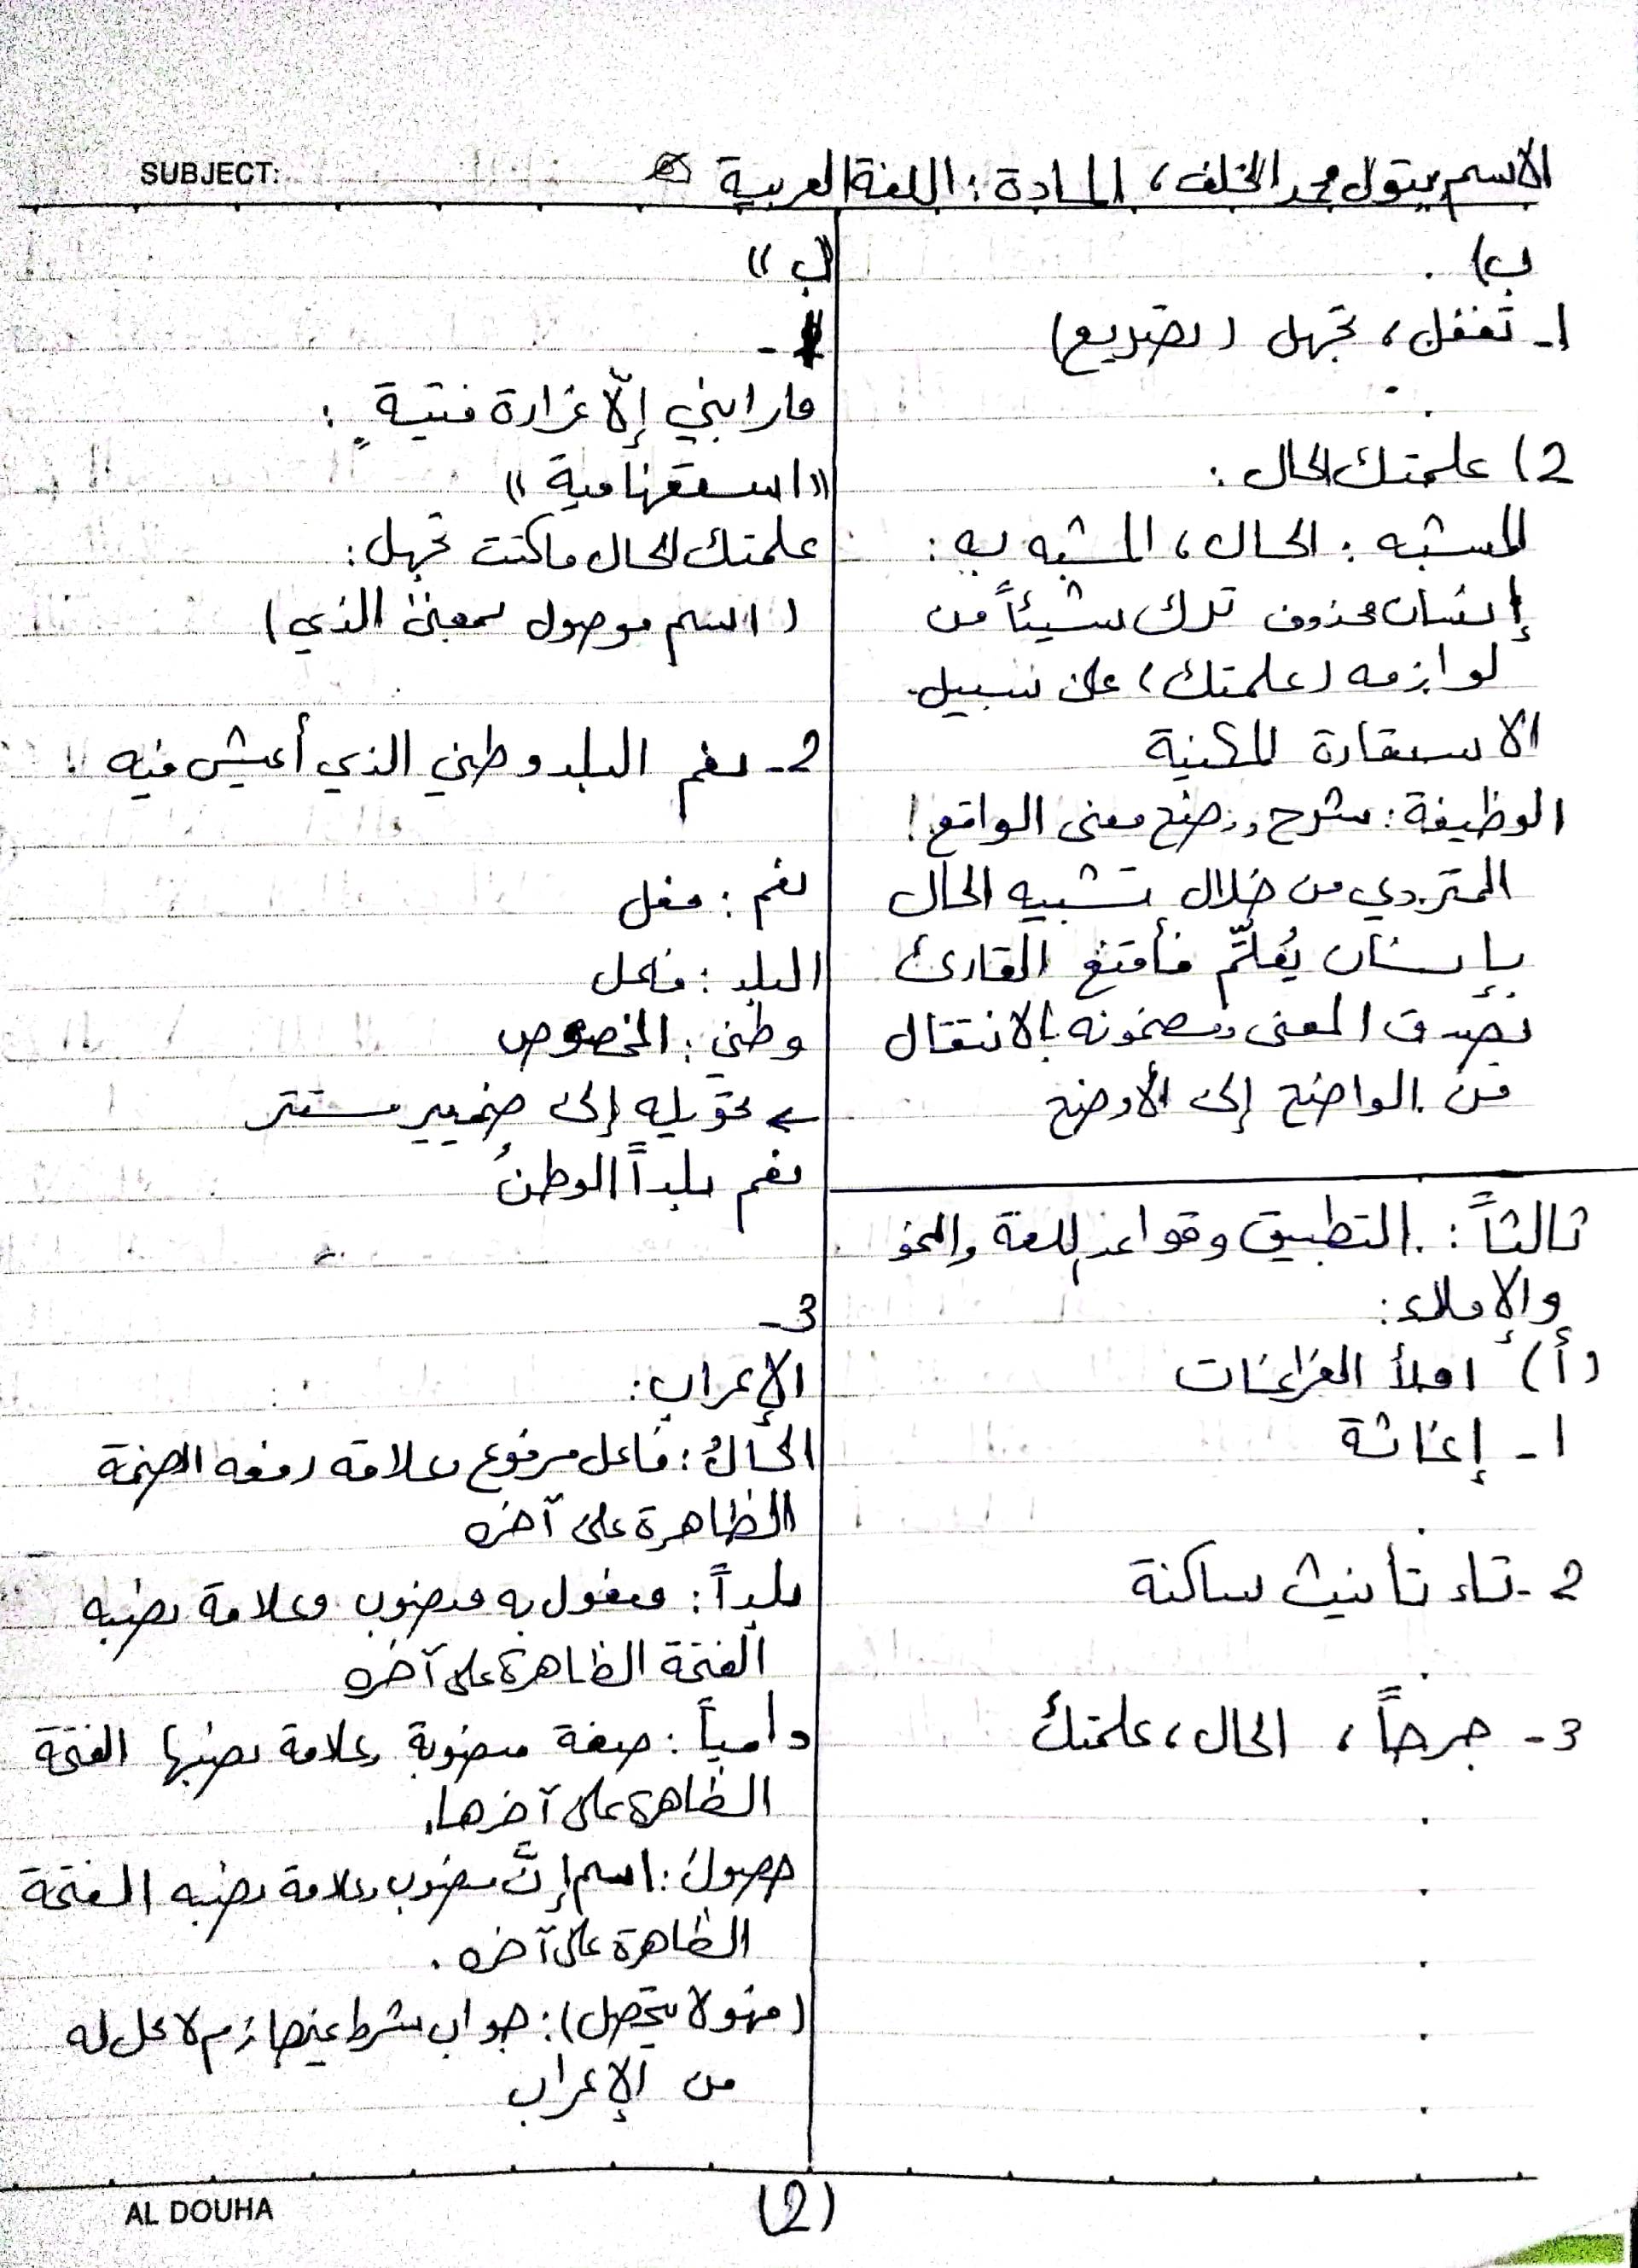 SUBJECT:
الاسم بتول محمد الخلف، المادة: اللغة العربية
ب)
1- تغفل، تجهل (تصريع)
2) علمتك الحال:
المشبه: الحال، المشبه به:
إنسان محذوف ترك شيئاً من
لوازمه (علمتك) على سبيل
الاستعارة المكنية
الوظيفة: شرح وضح معنى الواقع
المتردي من خلال تشبيه الحال
بإنسان يُعلّم فأقنع القارئ
بصدق المعنى ومضمونه بالانتقال
من الواضح إلى الأوضح
ثالثاً: التطبيق وقواعد اللغة والنحو
والإملاء:
(أ) املأ الفراغات
1- إغاثة
2- تاء تأنيث ساكنة
3- جرحاً، الحال، علمتك
(ب))
1-
ما رابني إلّا غرارة فتيةٍ:
((استفهامية))
علمتك الحال ما كنت تجهل:
(اسم موصول بمعنى الذي)
2- نعم البلد وطني الذي أعيش فيه
نعم: فعل
البلد: فاعل
وطني: المخصوص
تحويله إلى ضمير مستتر
نعم بلداً الوطنُ
3-
الإعراب:
الحالُ: فاعل مرفوع وعلامة رفعه الضمة
الظاهرة على آخره
بلداً: مفعول به منصوب وعلامة نصبه
الفتحة الظاهرة على آخره
دامياً: صفة منصوبة وعلامة نصبها الفتحة
الظاهرة على آخرها.
حصولَ: اسم إنَّ منصوب وعلامة نصبه الفتحة
الظاهرة على آخره.
(فهو لا يتحصل): جواب شرط غير جازم لا محل له
من الإعراب
AL DOUHA
(2)